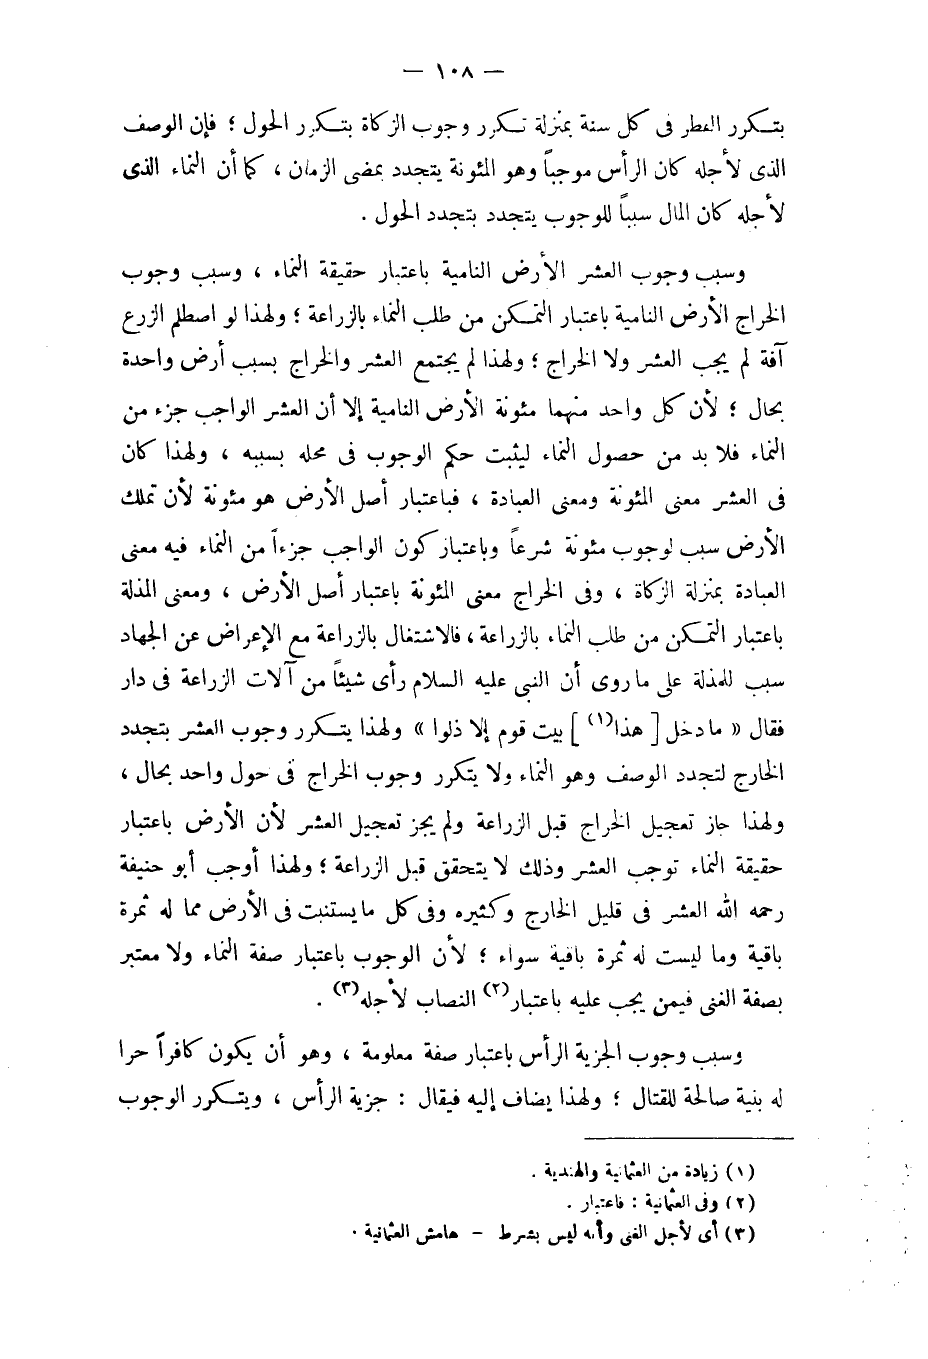 — ١٠٨ —
بتكرر الفطر فى كل سنة بمنزلة تكرر وجوب الزكاة بتكرر الحول ؛ فإن الوصف
الذى لأجله كان الرأس موجباً وهو المئونة يتجدد بمضى الزمان ، كما أن النماء الذى
لأجله كان المال سبباً للوجوب يتجدد بتجدد الحول .
وسبب وجوب العشر الأرض النامية باعتبار حقيقة النماء ، وسبب وجوب
الخراج الأرض النامية باعتبار التمكن من طلب النماء بالزراعة ؛ ولهذا لو اصطلم الزرع
آفة لم يجب العشر ولا الخراج ؛ ولهذا لم يجتمع العشر والخراج بسبب أرض واحدة
بحال ؛ لأن كل واحد منهما مئونة الأرض النامية إلا أن العشر الواجب جزء من
النماء فلا بد من حصول النماء ليثبت حكم الوجوب فى محله بسببه ، ولهذا كان
فى العشر معنى المئونة ومعنى العبادة ، فباعتبار أصل الأرض هو مئونة لأن تملك
الأرض سبب لوجوب مئونة شرعاً وباعتبار كون الواجب جزءاً من النماء فيه معنى
العبادة بمنزلة الزكاة ، وفى الخراج معنى المئونة باعتبار أصل الأرض ، ومعنى المذلة
باعتبار التمكن من طلب النماء بالزراعة ، فالاشتغال بالزراعة مع الإعراض عن الجهاد
سبب للمذلة على ما روى أن النبى عليه السلام رأى شيئاً من آلات الزراعة فى دار
فقال « ما دخل [ هذا(١) ] بيت قوم إلا ذلوا » ولهذا يتكرر وجوب العشر بتجدد
الخارج لتجدد الوصف وهو النماء ولا يتكرر وجوب الخراج فى حول واحد بحال ،
ولهذا جاز تعجيل الخراج قبل الزراعة ولم يجز تعجيل العشر لأن الأرض باعتبار
حقيقة النماء توجب العشر وذلك لا يتحقق قبل الزراعة ؛ ولهذا أوجب أبو حنيفة
رحمه الله العشر فى قليل الخارج وكثيره وفى كل ما يستنبت فى الأرض مما له ثمرة
باقية وما ليست له ثمرة باقية سواء ؛ لأن الوجوب باعتبار صفة النماء ولا معتبر
بصفة الغنى فيمن يجب عليه باعتبار(٢) النصاب لأجله(٣) .
وسبب وجوب الجزية الرأس باعتبار صفة معلومة ، وهو أن يكون كافراً حرا
له بنية صالحة للقتال ؛ ولهذا يضاف إليه فيقال : جزية الرأس ، ويتكرر الوجوب
(١) زيادة من العثمانية والهندية .
(٢) وفى العثمانية : فاعتبار .
(٣) أى لأجل الغنى وأنه ليس بشرط – هامش العثمانية .